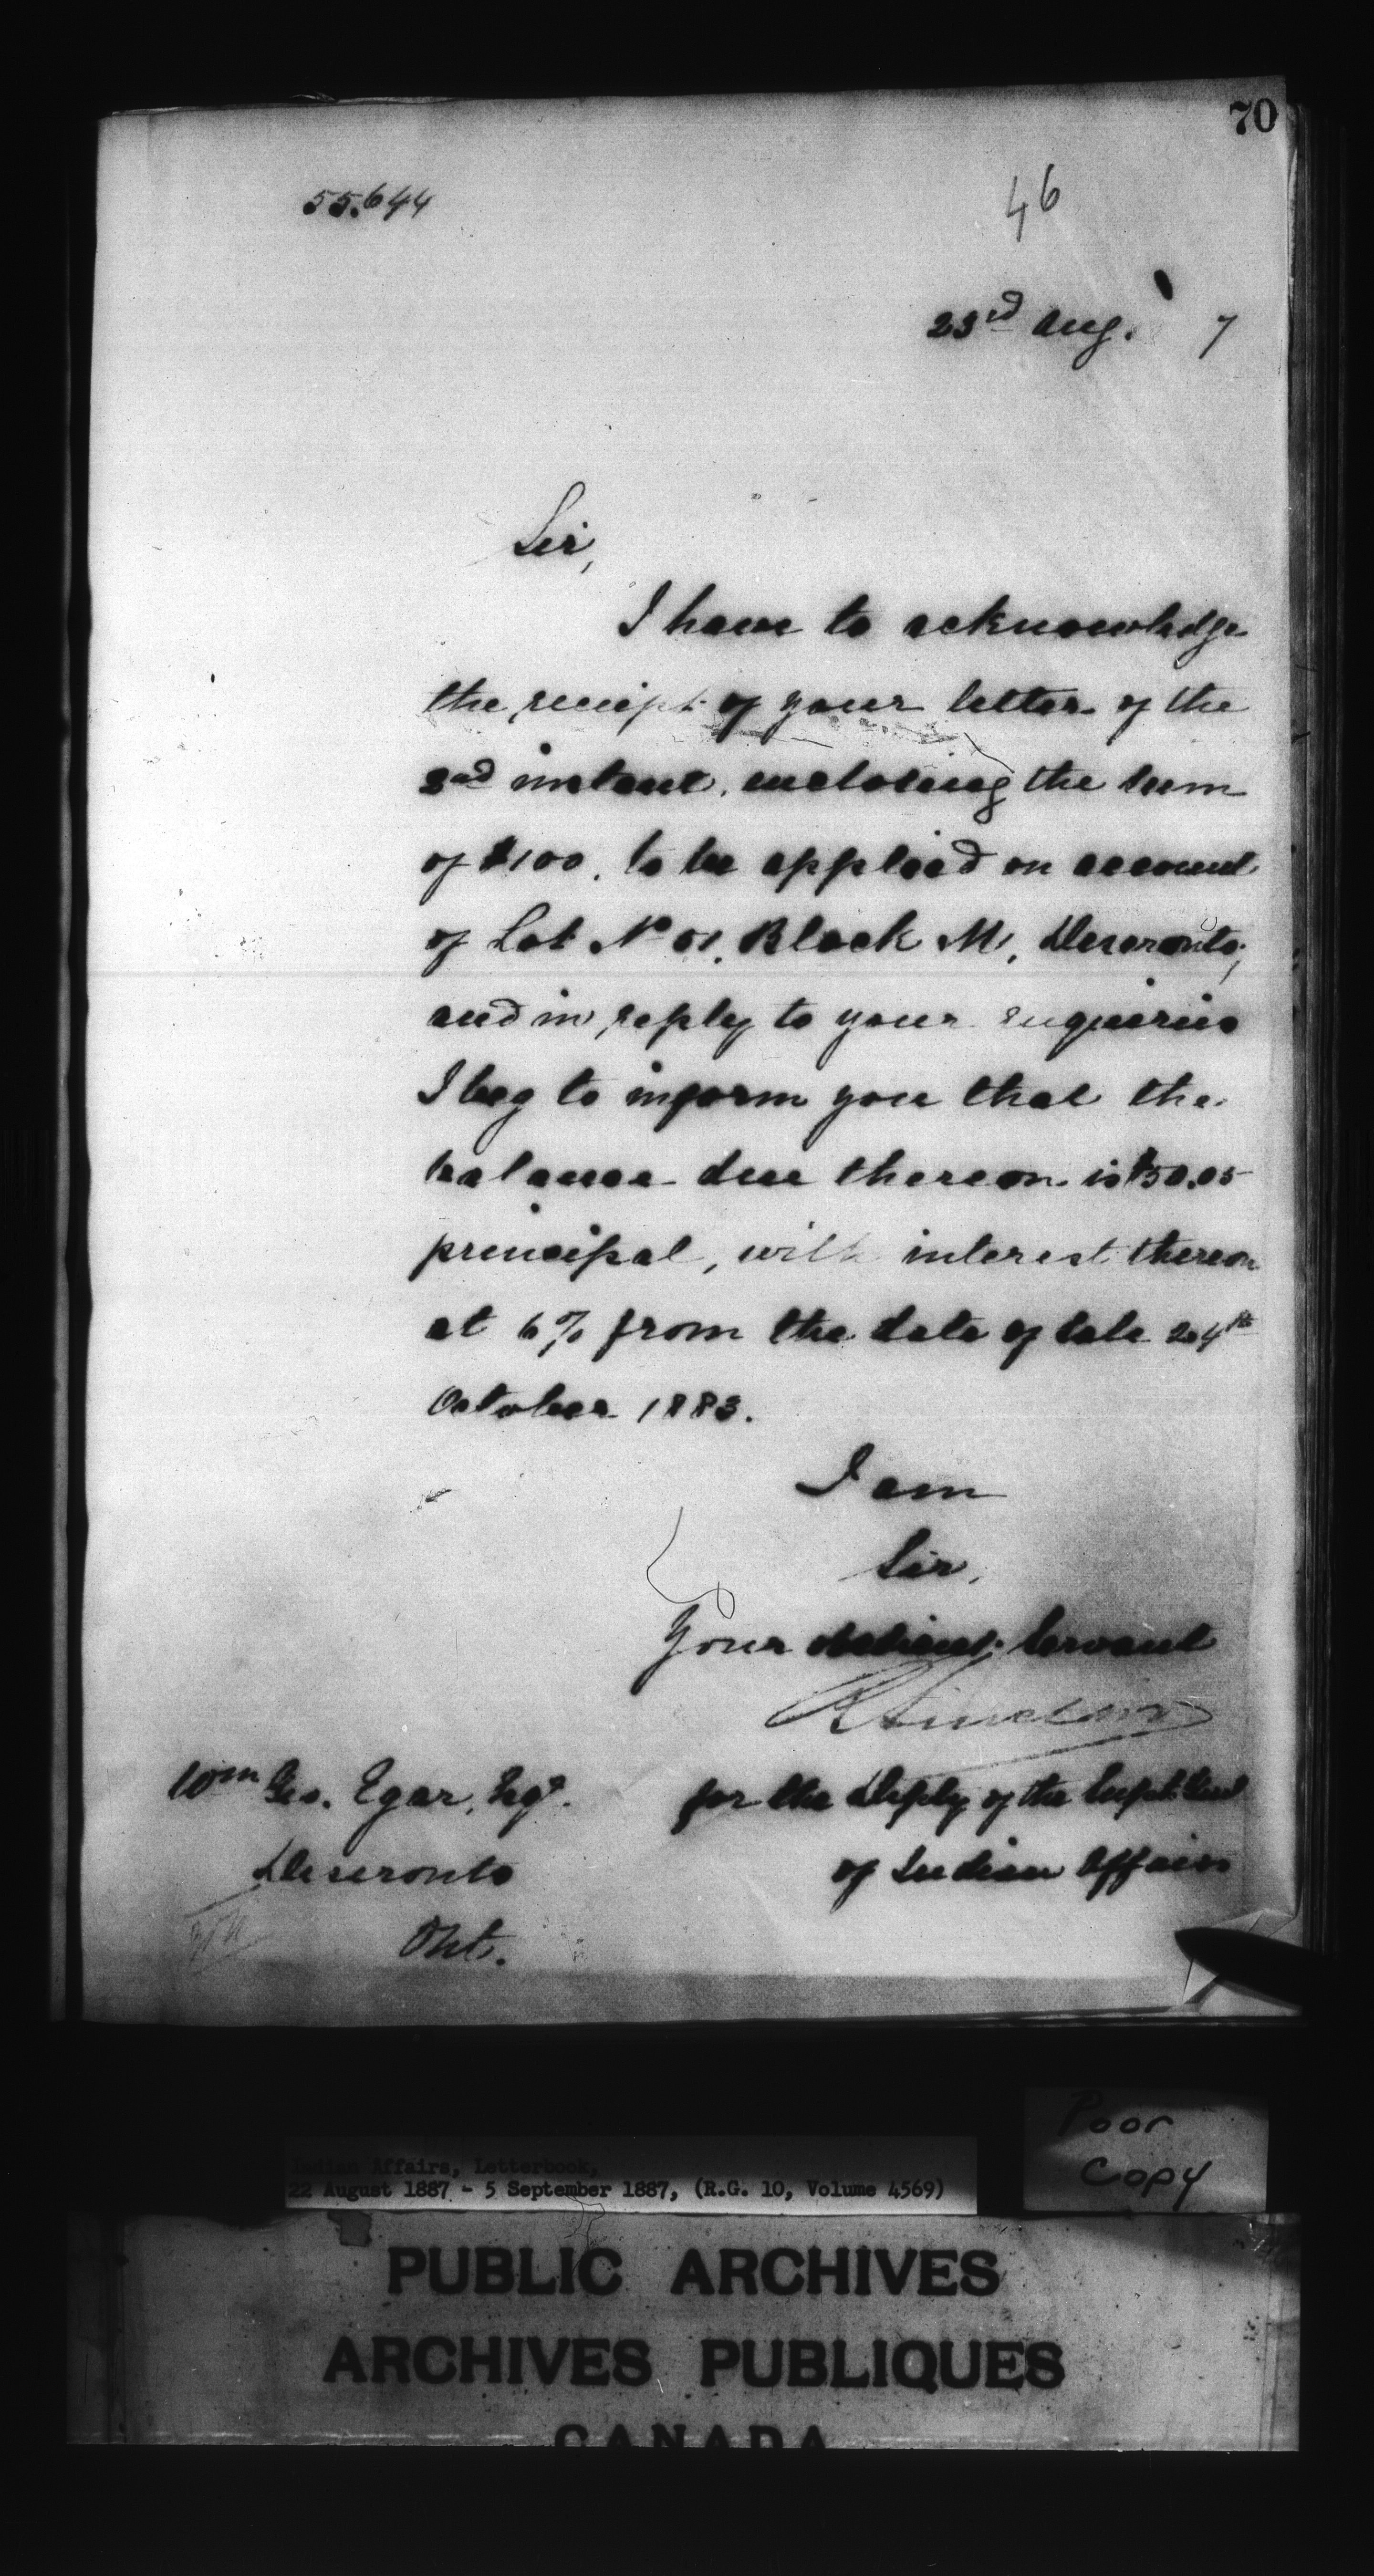 70
55.644
46
23rd Aug. 7
Sir,
I have to acknowledge
the receipt of your letter of the
2nd instant, enclosing the sum
of $100. to be applied on account
of Lot No 01, Block M, Deseronto;
and in reply to your enquiries
I beg to inform you that the
balance due thereon is $50.05
principal, with interest thereon
at 6% from the date of sale 24th
October 1883.
I am
Sir,
Your obedient Servant
R Sinclair
Wm Geo. Egar, Esqr.
for the Depty of the Supt. Genl
Deseronto
of Indian Affairs
Ont.
Poor
Copy
Indian Affairs, Letterbook,
22 August 1887 - 5 September 1887, (R.G. 10, Volume 4569)
PUBLIC ARCHIVES
ARCHIVES PUBLIQUES
CANADA